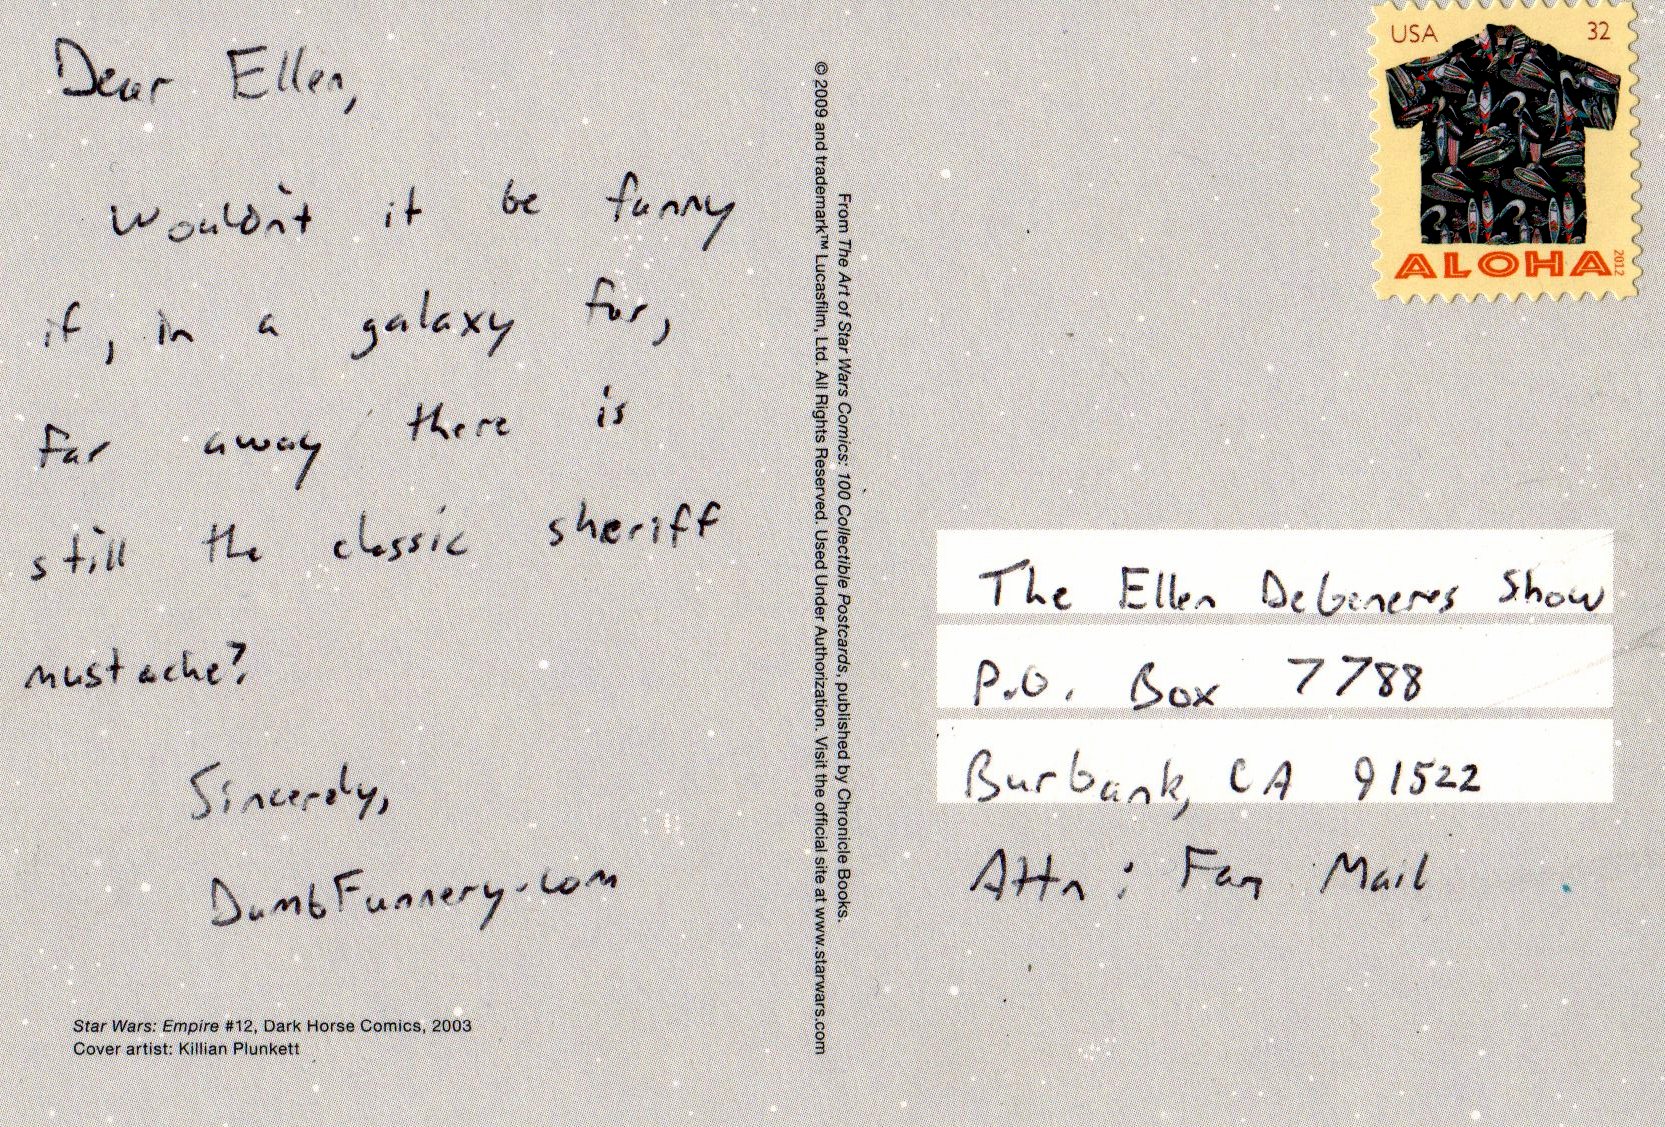 Dear Ellen,
Wouldn't it be funny
if, in a galaxy far,
far away there is
still the classic sheriff
mustache?
Sincerely,
DumbFunnery.com
Star Wars: Empire #12, Dark Horse Comics, 2003
Cover artist: Killian Plunkett
From The Art of Star Wars Comics: 100 Collectible Postcards, published by Chronicle Books.
© 2009 and trademark™ Lucasfilm, Ltd. All Rights Reserved. Used Under Authorization. Visit the official site at www.starwars.com
USA 32
ALOHA 2012
The Ellen DeGeneres Show
P.O. Box 7788
Burbank, CA 91522
Attn: Fan Mail